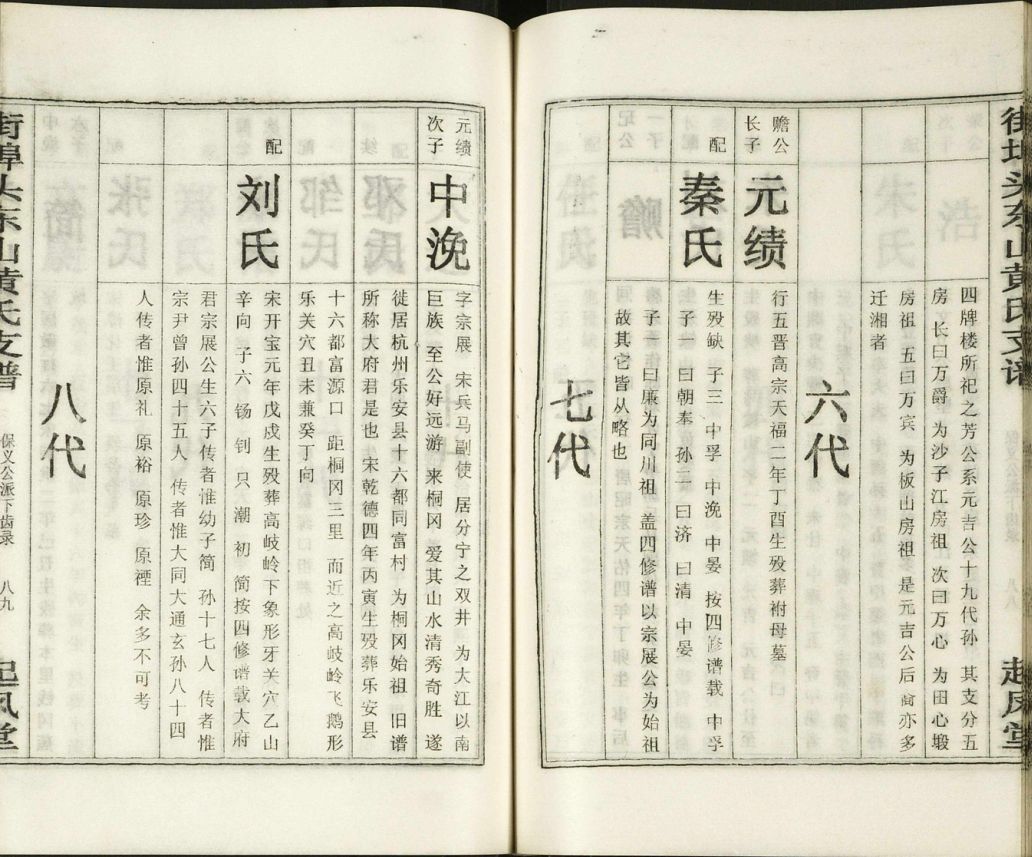 街埠头东山黄氏支谱
起凤堂
四牌楼所祀之芳公系元吉公十九代孙 其支分五
房 长曰万爵 为沙子江房祖 次曰万心 为田心塅
房祖 五曰万宾 为板山房祖 多是元吉公后裔亦多
迁湘者
六代
赡公
长子
元绩
行五晋高宗天福二年丁酉生殁葬祔母墓
配
秦氏
生殁缺 子三 中孚 中浼 中晏 按四修谱载 中孚
子一 曰朝奉 孙二 一曰济 一曰清 中晏
子一曰廉为同川祖 盖四修谱以宗展公为始祖
故其它皆从略也
七代
元绩
次子
中浼
字宗展 宋兵马副使 居分宁之双井 为大江以南
巨族 至公好远游 来桐冈 爱其山水清秀奇胜 遂
徙居杭州乐安县十六都同富村 为桐冈始祖 旧谱
所称大府君是也 宋乾德四年丙寅生殁葬乐安县
十六都富源口 距桐冈三里 而近之高岐岭飞鹅形
乐关穴丑未兼癸丁向
配
刘氏
宋开宝元年戊戌生殁葬高岐岭下象形牙关穴乙山
辛向 子六 钖 钊 只 潮 初 简按四修谱载大府
君宗展公生六子传者惟幼子简 孙十七人 传者惟
宗尹曾孙四十五人 传者惟大同大通玄孙八十四
人传者惟原礼 原裕 原珍 原禋 余多不可考
八代
街埠头东山黄氏支谱
保义公派下齿录
八九
起凤堂